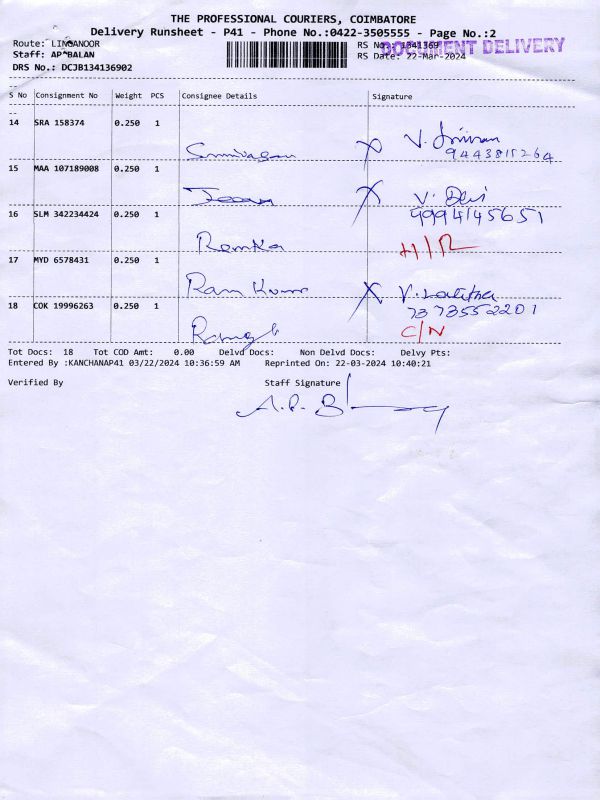 THE PROFESSIONAL COURIERS, COIMBATORE
Delivery Runsheet - P41 - Phone No.:0422-3505555 - Page No.:2
Route: LINGANOOR
RS No.: 1341369
DOCUMENT DELIVERY
Staff: AP BALAN
RS Date: 22-Mar-2024
DRS No.: DCJB134136902
S No Consignment No Weight PCS Consignee Details Signature
14 SRA 158374 0.250 1
Srinivasan X V. Srinivasan
9443815264
15 MAA 107189008 0.250 1
X V. Devi
9994145651
16 SLM 342234424 0.250 1
Remka H/R
17 MYD 6578431 0.250 1
Ram Kumar X V. Lalitha
7373552201
18 COK 19996263 0.250 1
C/N
Tot Docs: 18 Tot COD Amt: 0.00 Delvd Docs: Non Delvd Docs: Delvy Pts:
Entered By :KANCHANAP41 03/22/2024 10:36:59 AM Reprinted On: 22-03-2024 10:40:21
Verified By Staff Signature